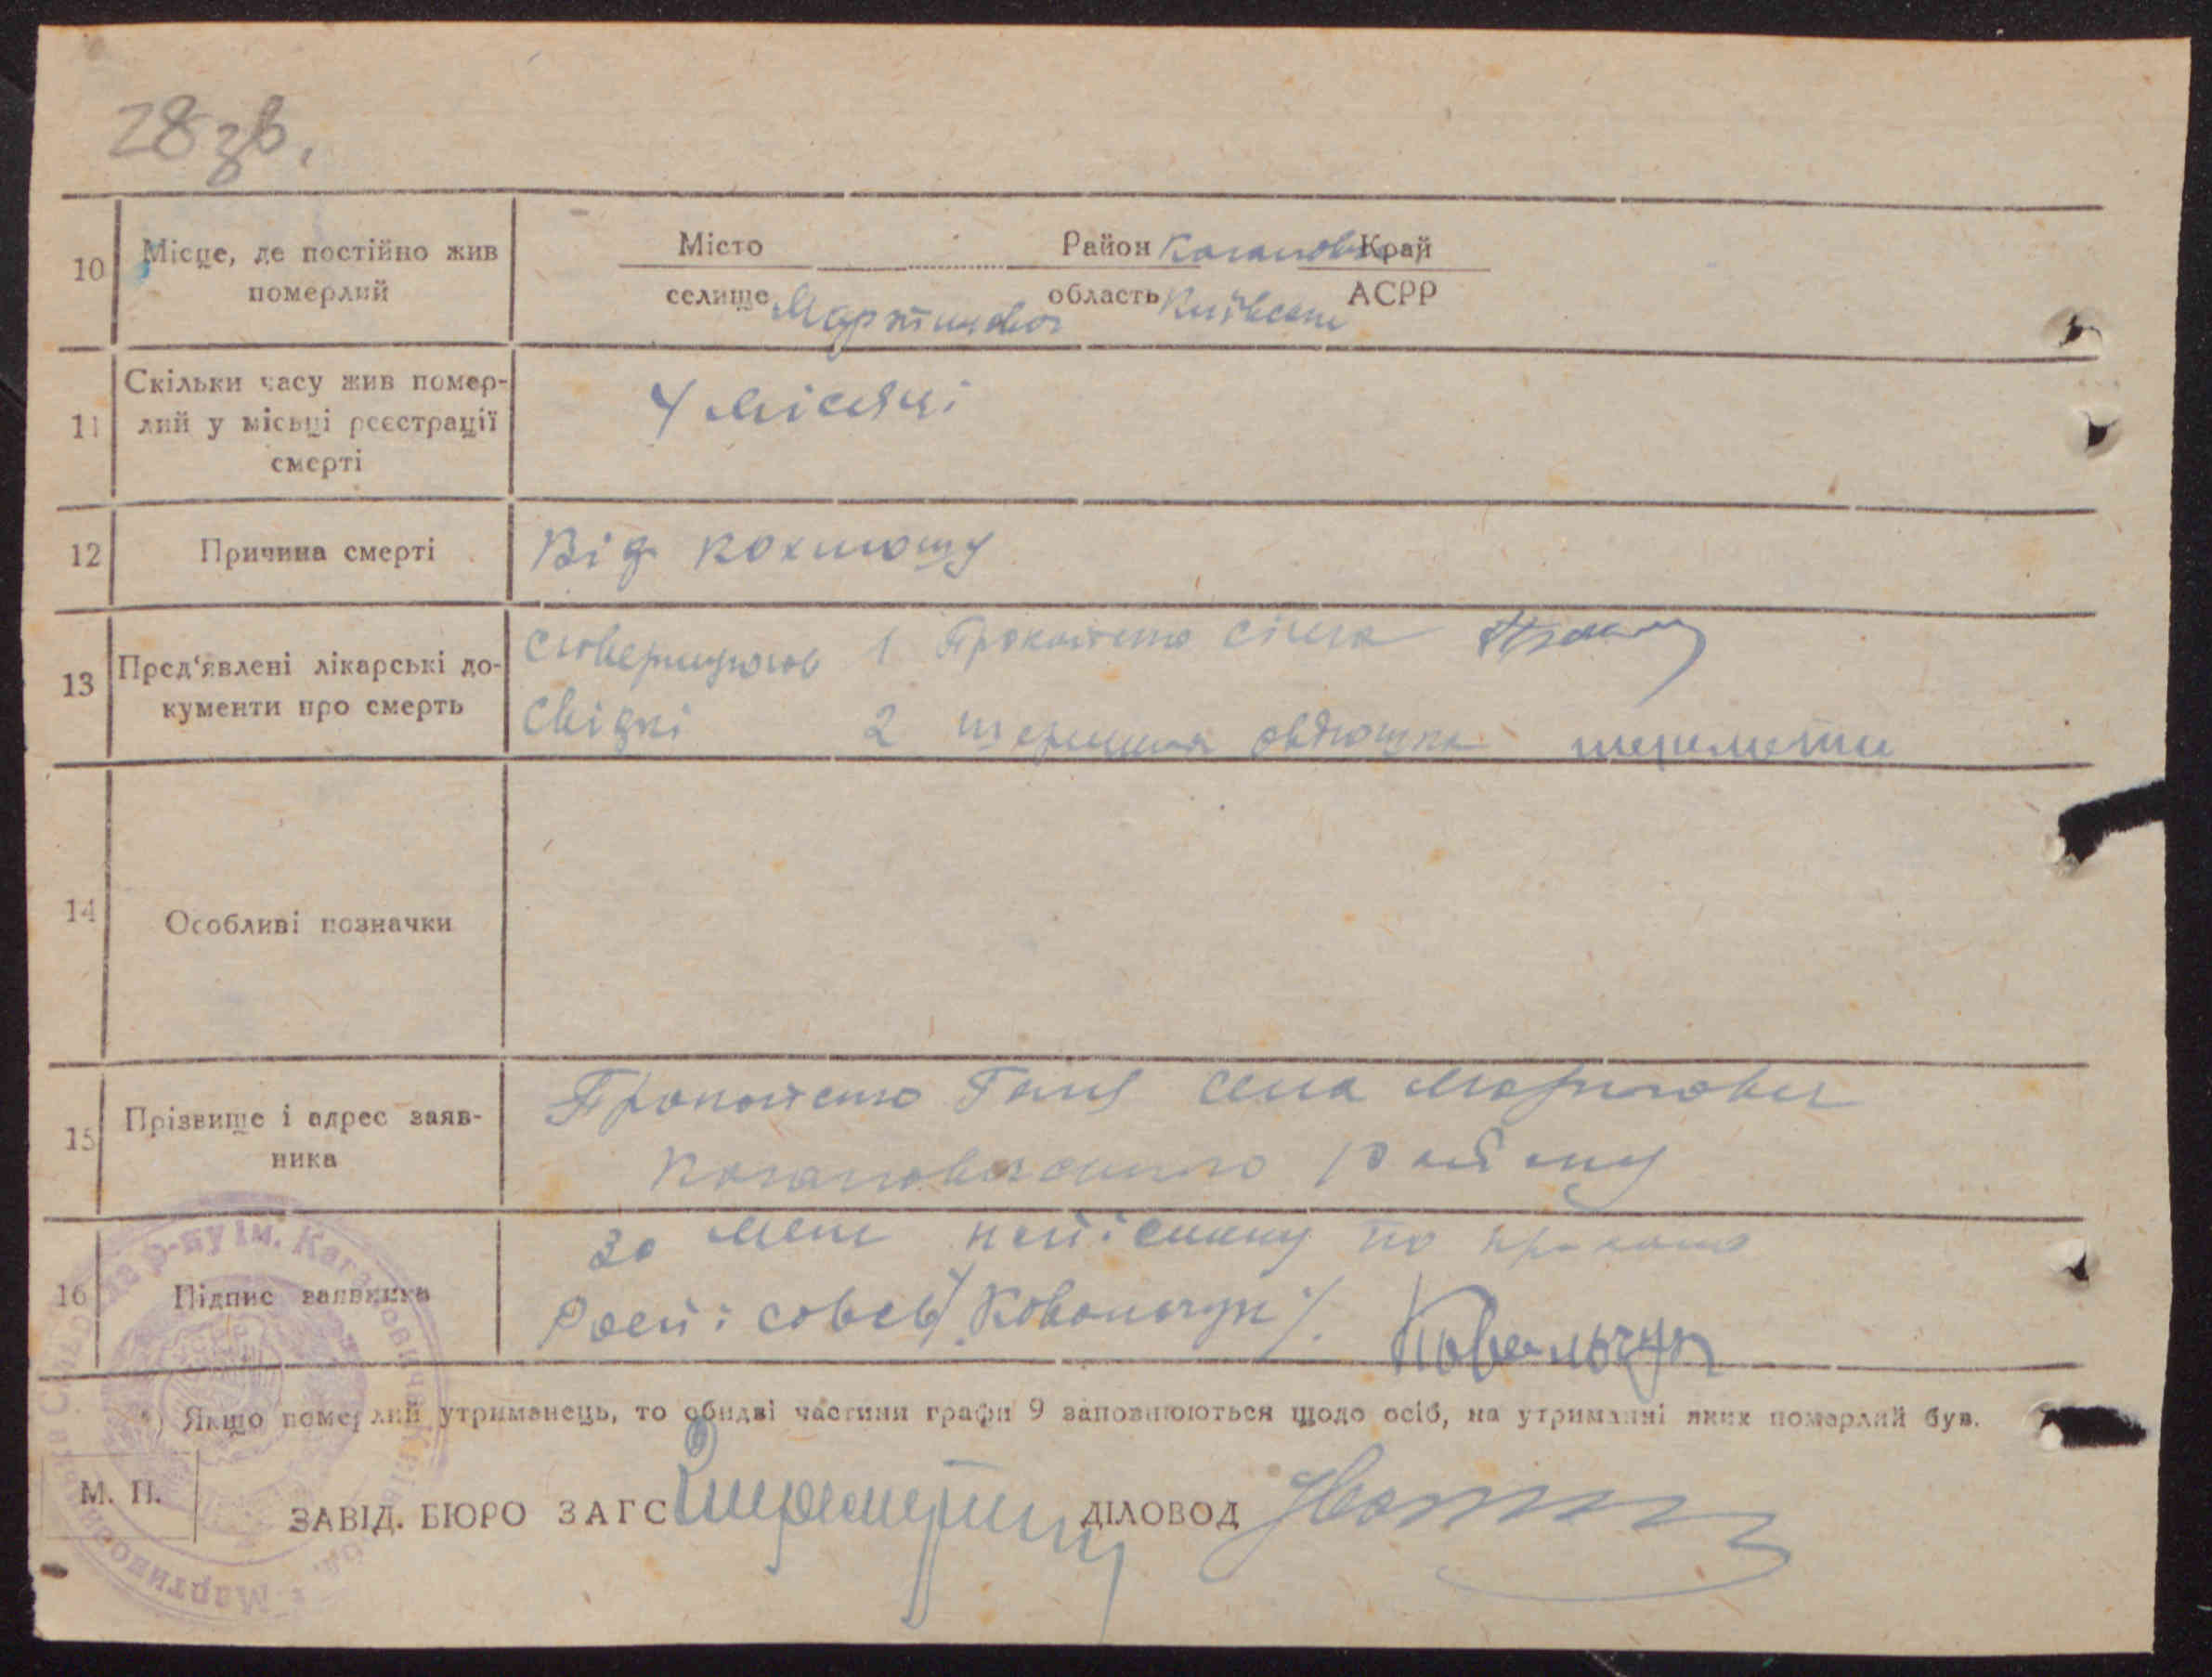 28 зв.
10 Місце, де постійно жив померлий
Місто Район Каганович Край
селище Мартиновичі область Київська АСРР
11 Скільки часу жив помер-
лий у місьці реєстрації
смерті
4 місяці
12 Причина смерті
Від коклюшу
13 Пред'явлені лікарські до-
кументи про смерть
1 Прокопенко
Свідкі 2
14 Особливі позначки
15 Прізвище і адрес заяв-
ника
Прокопенко Ганя села Мартиновичі
Кагановичского району
16 Підпис заявника
За мене неписьмену по
/Ковальчук/. Ковальчук
*) Якщо померлий утриманець, то обидві частини графи 9 заповнюються щодо осіб, на утриманні яких померлий був.
М. П.
ЗАВІД. БЮРО ЗАГС ДІЛОВОД